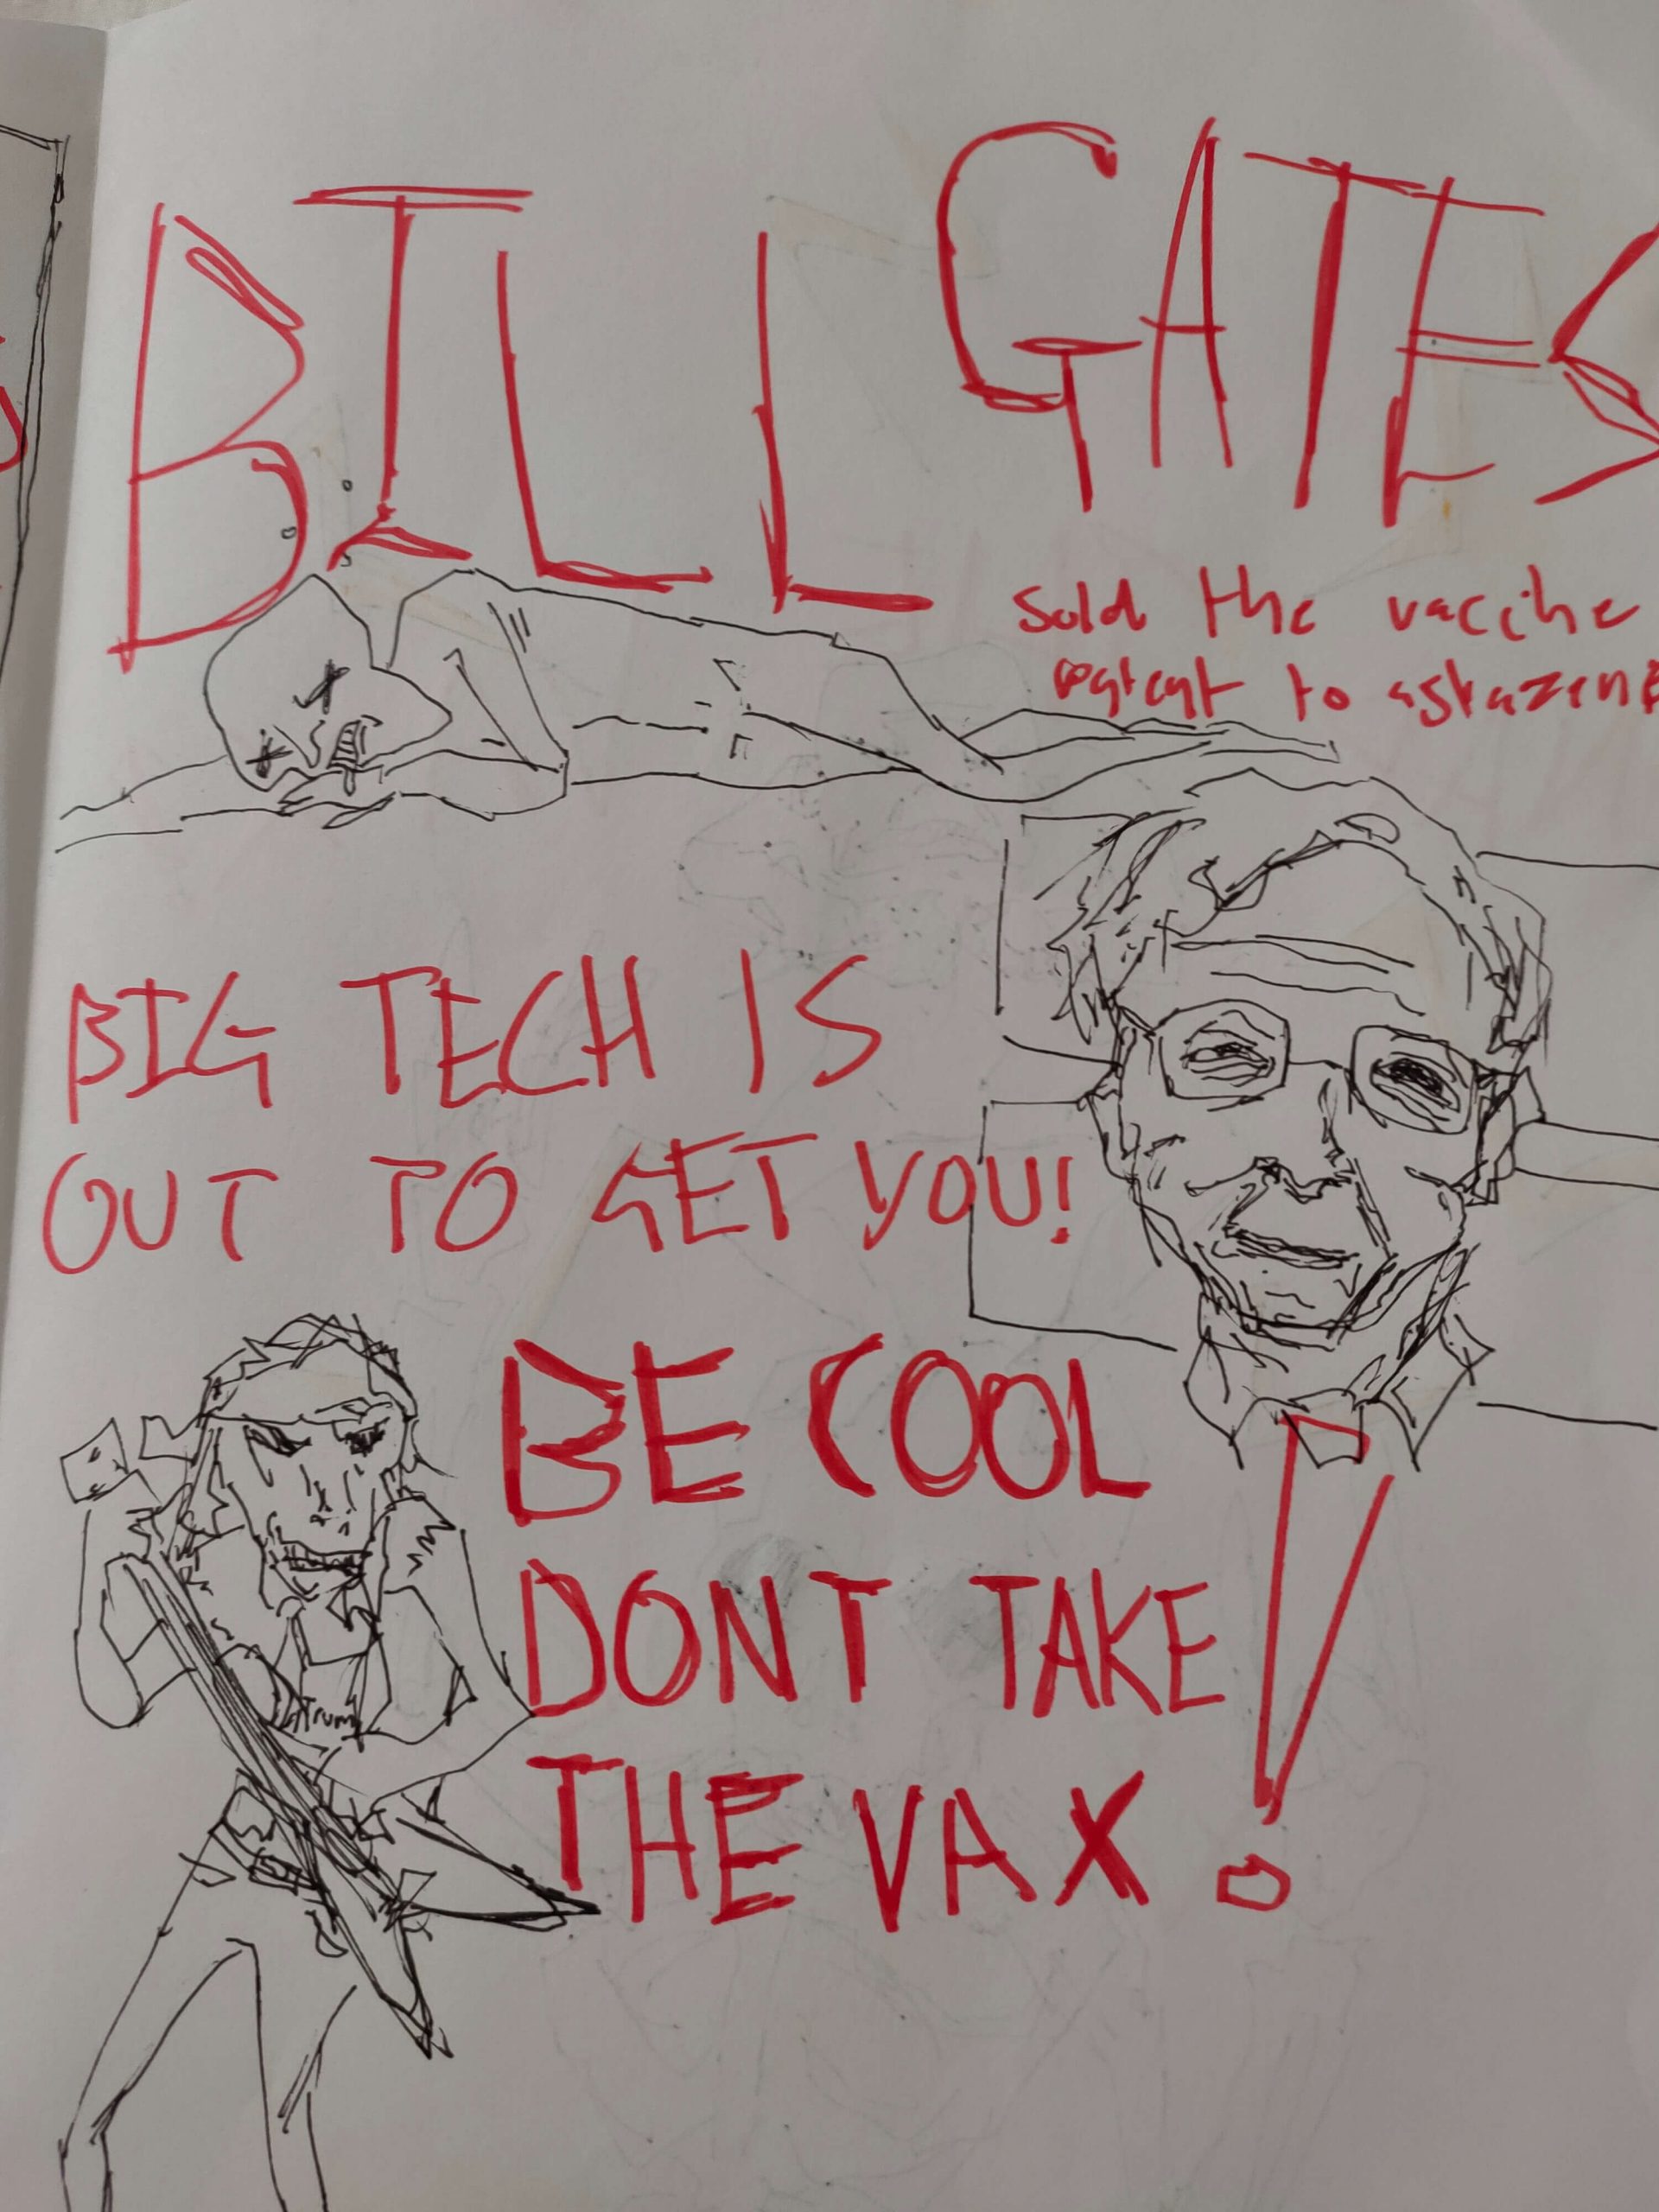 BILL GATES
Sold the vaccine
patent to astazene
BIG TECH IS
OUT TO GET YOU!
BE COOL
DONT TAKE
THE VAX!
Trump